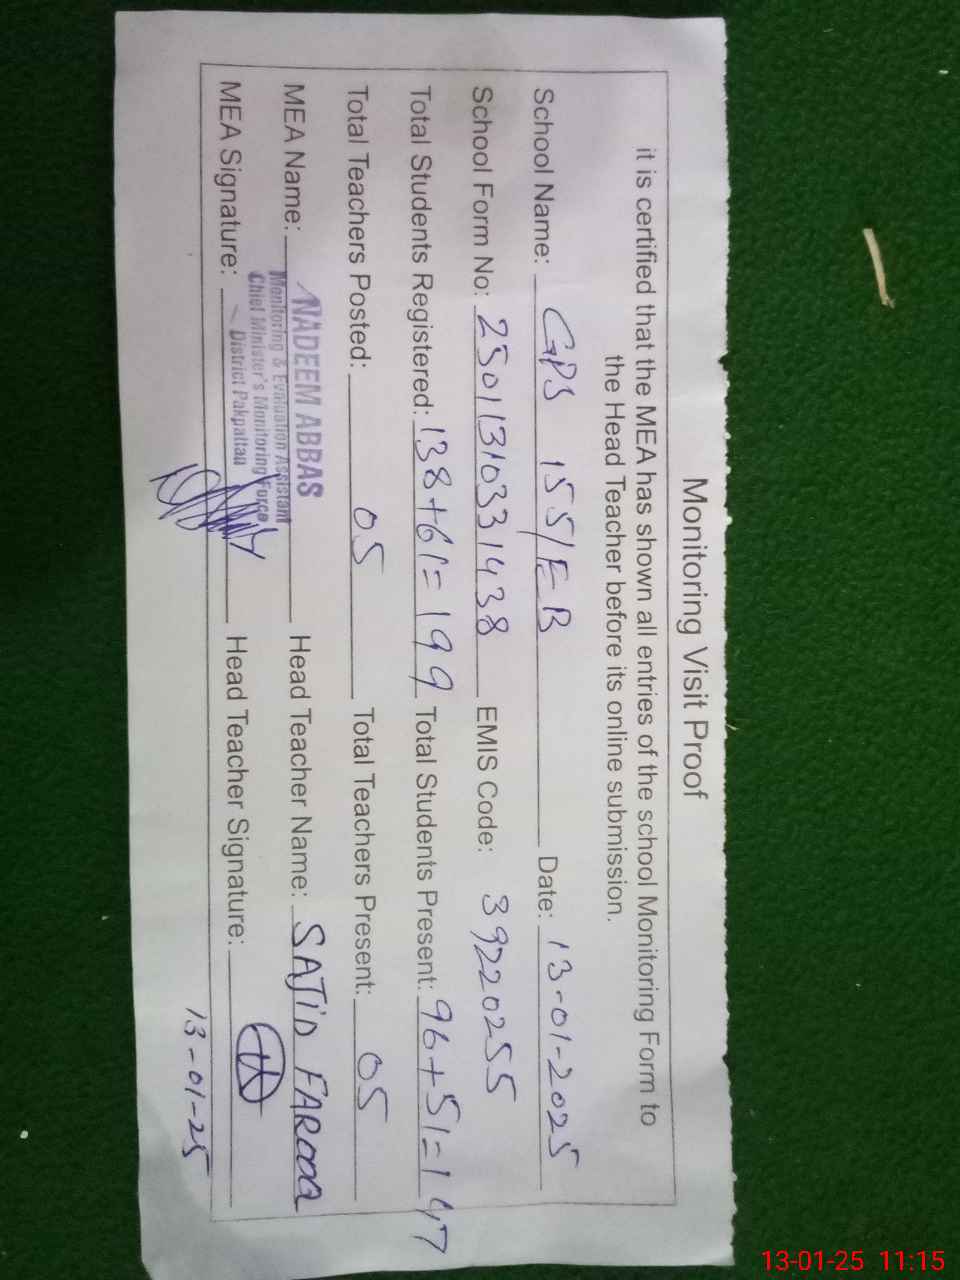 Monitoring Visit Proof
it is certified that the MEA has shown all entries of the school Monitoring Form to
the Head Teacher before its online submission.
School Name: GPS 155/EB Date: 13-01-2025
School Form No: 2501131031438 EMIS Code: 39220255
Total Students Registered: 138+61=199 Total Students Present: 96+51=147
Total Teachers Posted: 05 Total Teachers Present: 05
MEA Name: NADEEM ABBAS Head Teacher Name: SAJiD FAROOQ
Monitoring & Evaluation Assistant
Chief Minister's Monitoring Force
District Pakpattan
MEA Signature: Head Teacher Signature:
13-01-25
13-01-25 11:15